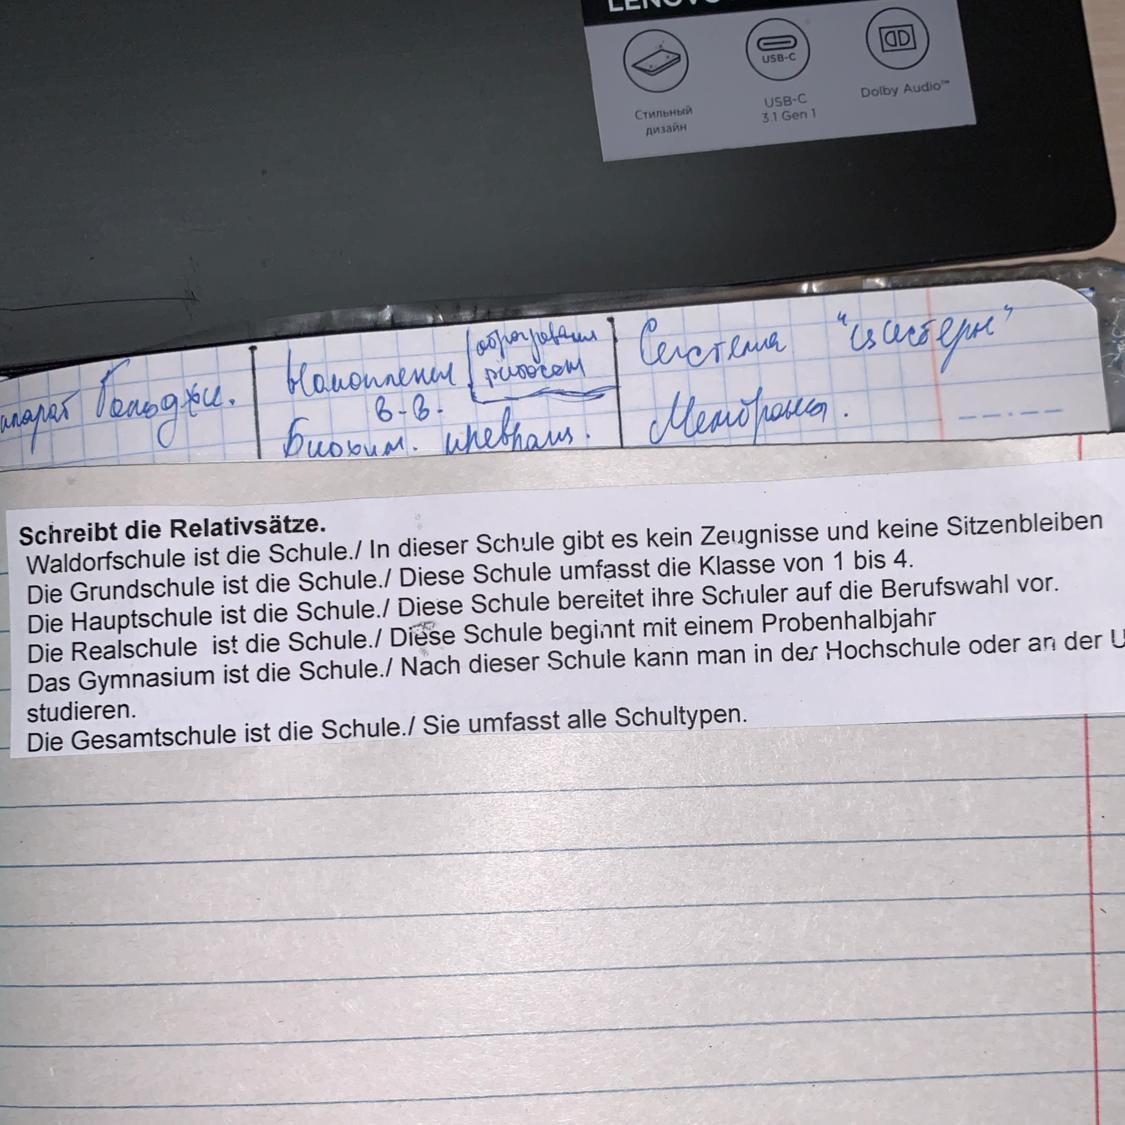 LENOVO
Стильный
дизайн
USB-C
USB-C
3.1 Gen 1
Dolby Audio™
Гольджи.
Накоплении
в-в.
Биохим. превращ.
Система "цистерн"
Мембрана.
Schreibt die Relativsätze.
Waldorfschule ist die Schule./ In dieser Schule gibt es kein Zeugnisse und keine Sitzenbleiben
Die Grundschule ist die Schule./ Diese Schule umfasst die Klasse von 1 bis 4.
Die Hauptschule ist die Schule./ Diese Schule bereitet ihre Schuler auf die Berufswahl vor.
Die Realschule ist die Schule./ Diese Schule beginnt mit einem Probenhalbjahr
Das Gymnasium ist die Schule./ Nach dieser Schule kann man in der Hochschule oder an der U
studieren.
Die Gesamtschule ist die Schule./ Sie umfasst alle Schultypen.